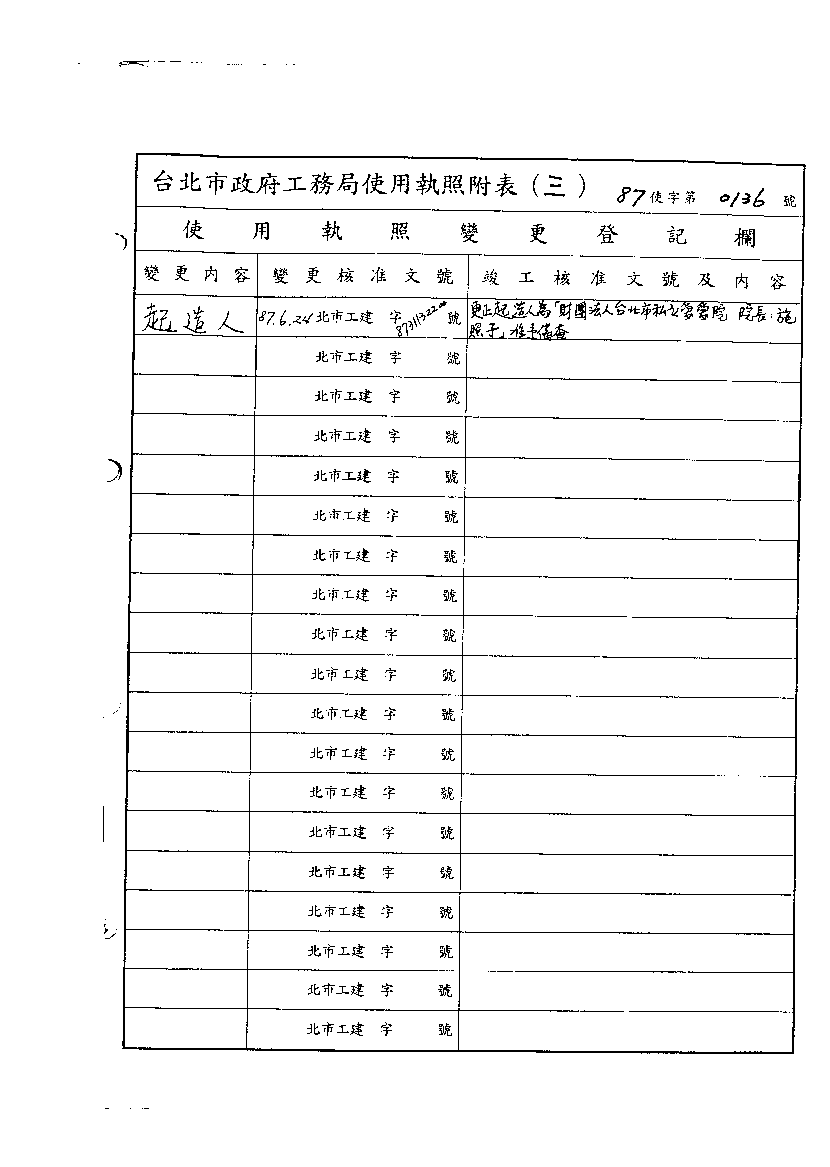 台北市政府工務局使用執照附表(三) 87使字第 0136 號
使用執照變更登記欄
變更內容 變更核准文號 竣工核准文號及內容
起造人 87.6.24北市工建 字8731132200號 更正起造人為「財團法人台北市私立愛愛院 院長:施
照子」准予備查
北市工建 字 號
北市工建 字 號
北市工建 字 號
北市工建 字 號
北市工建 字 號
北市工建 字 號
北市工建 字 號
北市工建 字 號
北市工建 字 號
北市工建 字 號
北市工建 字 號
北市工建 字 號
北市工建 字 號
北市工建 字 號
北市工建 字 號
北市工建 字 號
北市工建 字 號
北市工建 字 號